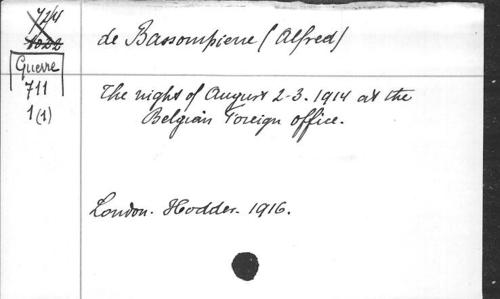 de Bassompierre (Alfred)
Guerre
711
1(1)
The night of August 2-3. 1914 at the
Belgian Foreign office.
London. Hodder. 1916.